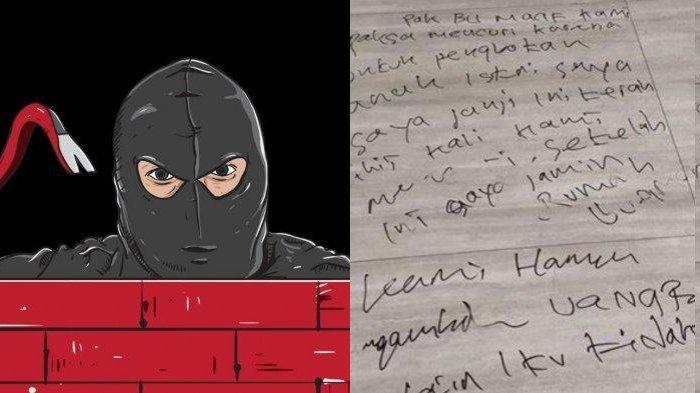 Pak Bu Maaf Kami
paksa mencuri karena
untuk pengobatan
anak Istri saya
saya janji ini terah
hir kali kami
men -i, setelah
ini saya jamin
Rumah
Kami Hanya
ngambil UANG
lain Itu tidak